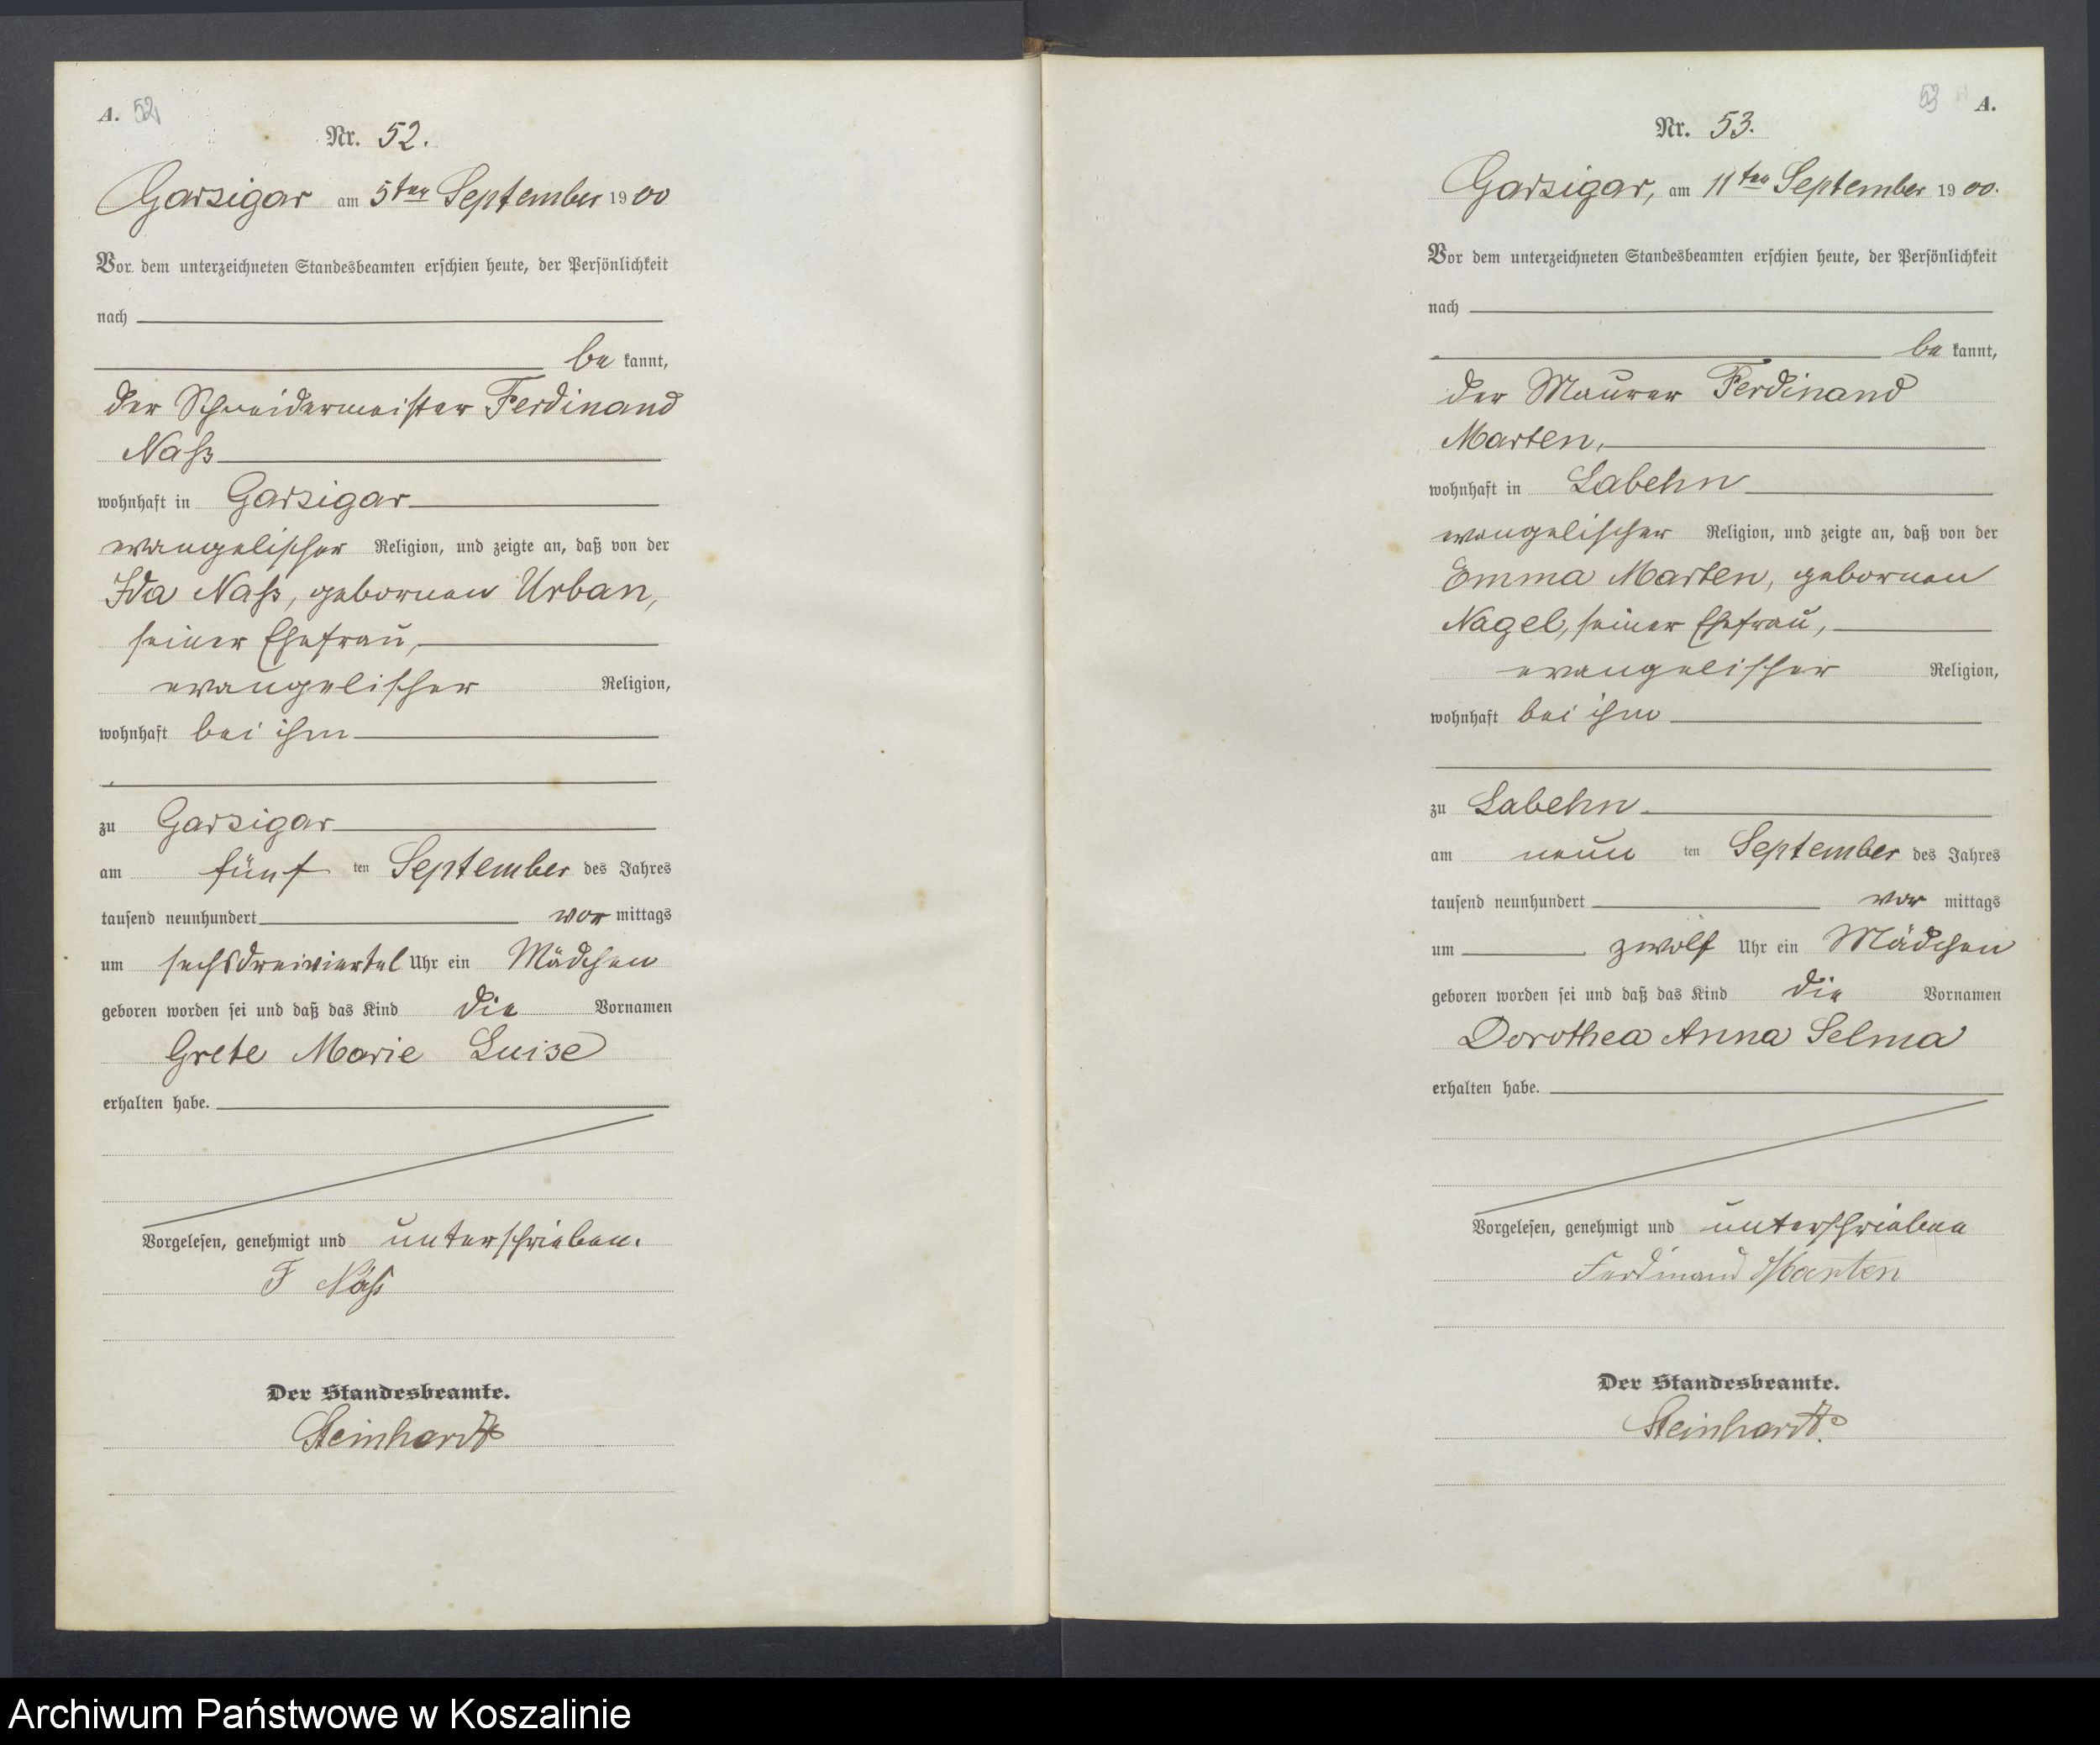 A. 52
Nr. 52.
Garzigar am 5ten September 1900
Vor dem unterzeichneten Standesbeamten erschien heute, der Persönlichkeit
nach
be kannt,
der Schneidermeister Ferdinand
Naß
wohnhaft in Garzigar
evangelischer Religion, und zeigte an, daß von der
Ida Naß, gebornen Urban,
seiner Ehefrau,
evangelischer Religion,
wohnhaft bei ihm
zu Garzigar
am fünf ten September des Jahres
tausend neunhundert vor mittags
um sechsdreiviertel Uhr ein Mädchen
geboren worden sei und daß das Kind die Vornamen
Grete Marie Luise
erhalten habe.
Vorgelesen, genehmigt und unterschrieben.
F Naß
Der Standesbeamte.
Steinhardt
53 A.
Nr. 53.
Garzigar, am 11ten September 1900.
Vor dem unterzeichneten Standesbeamten erschien heute, der Persönlichkeit
nach
be kannt,
der Maurer Ferdinand
Marten,
wohnhaft in Labehn
evangelischer Religion, und zeigte an, daß von der
Emma Marten, gebornen
Nagel, seiner Ehefrau,
evangelischer Religion,
wohnhaft bei ihm
zu Labehn
am neun ten September des Jahres
tausend neunhundert vor mittags
um zwölf Uhr ein Mädchen
geboren worden sei und daß das Kind die Vornamen
Dorothea Anna Selma
erhalten habe.
Vorgelesen, genehmigt und unterschrieben
Ferdinand Marten
Der Standesbeamte.
Steinhardt.
Archiwum Państwowe w Koszalinie